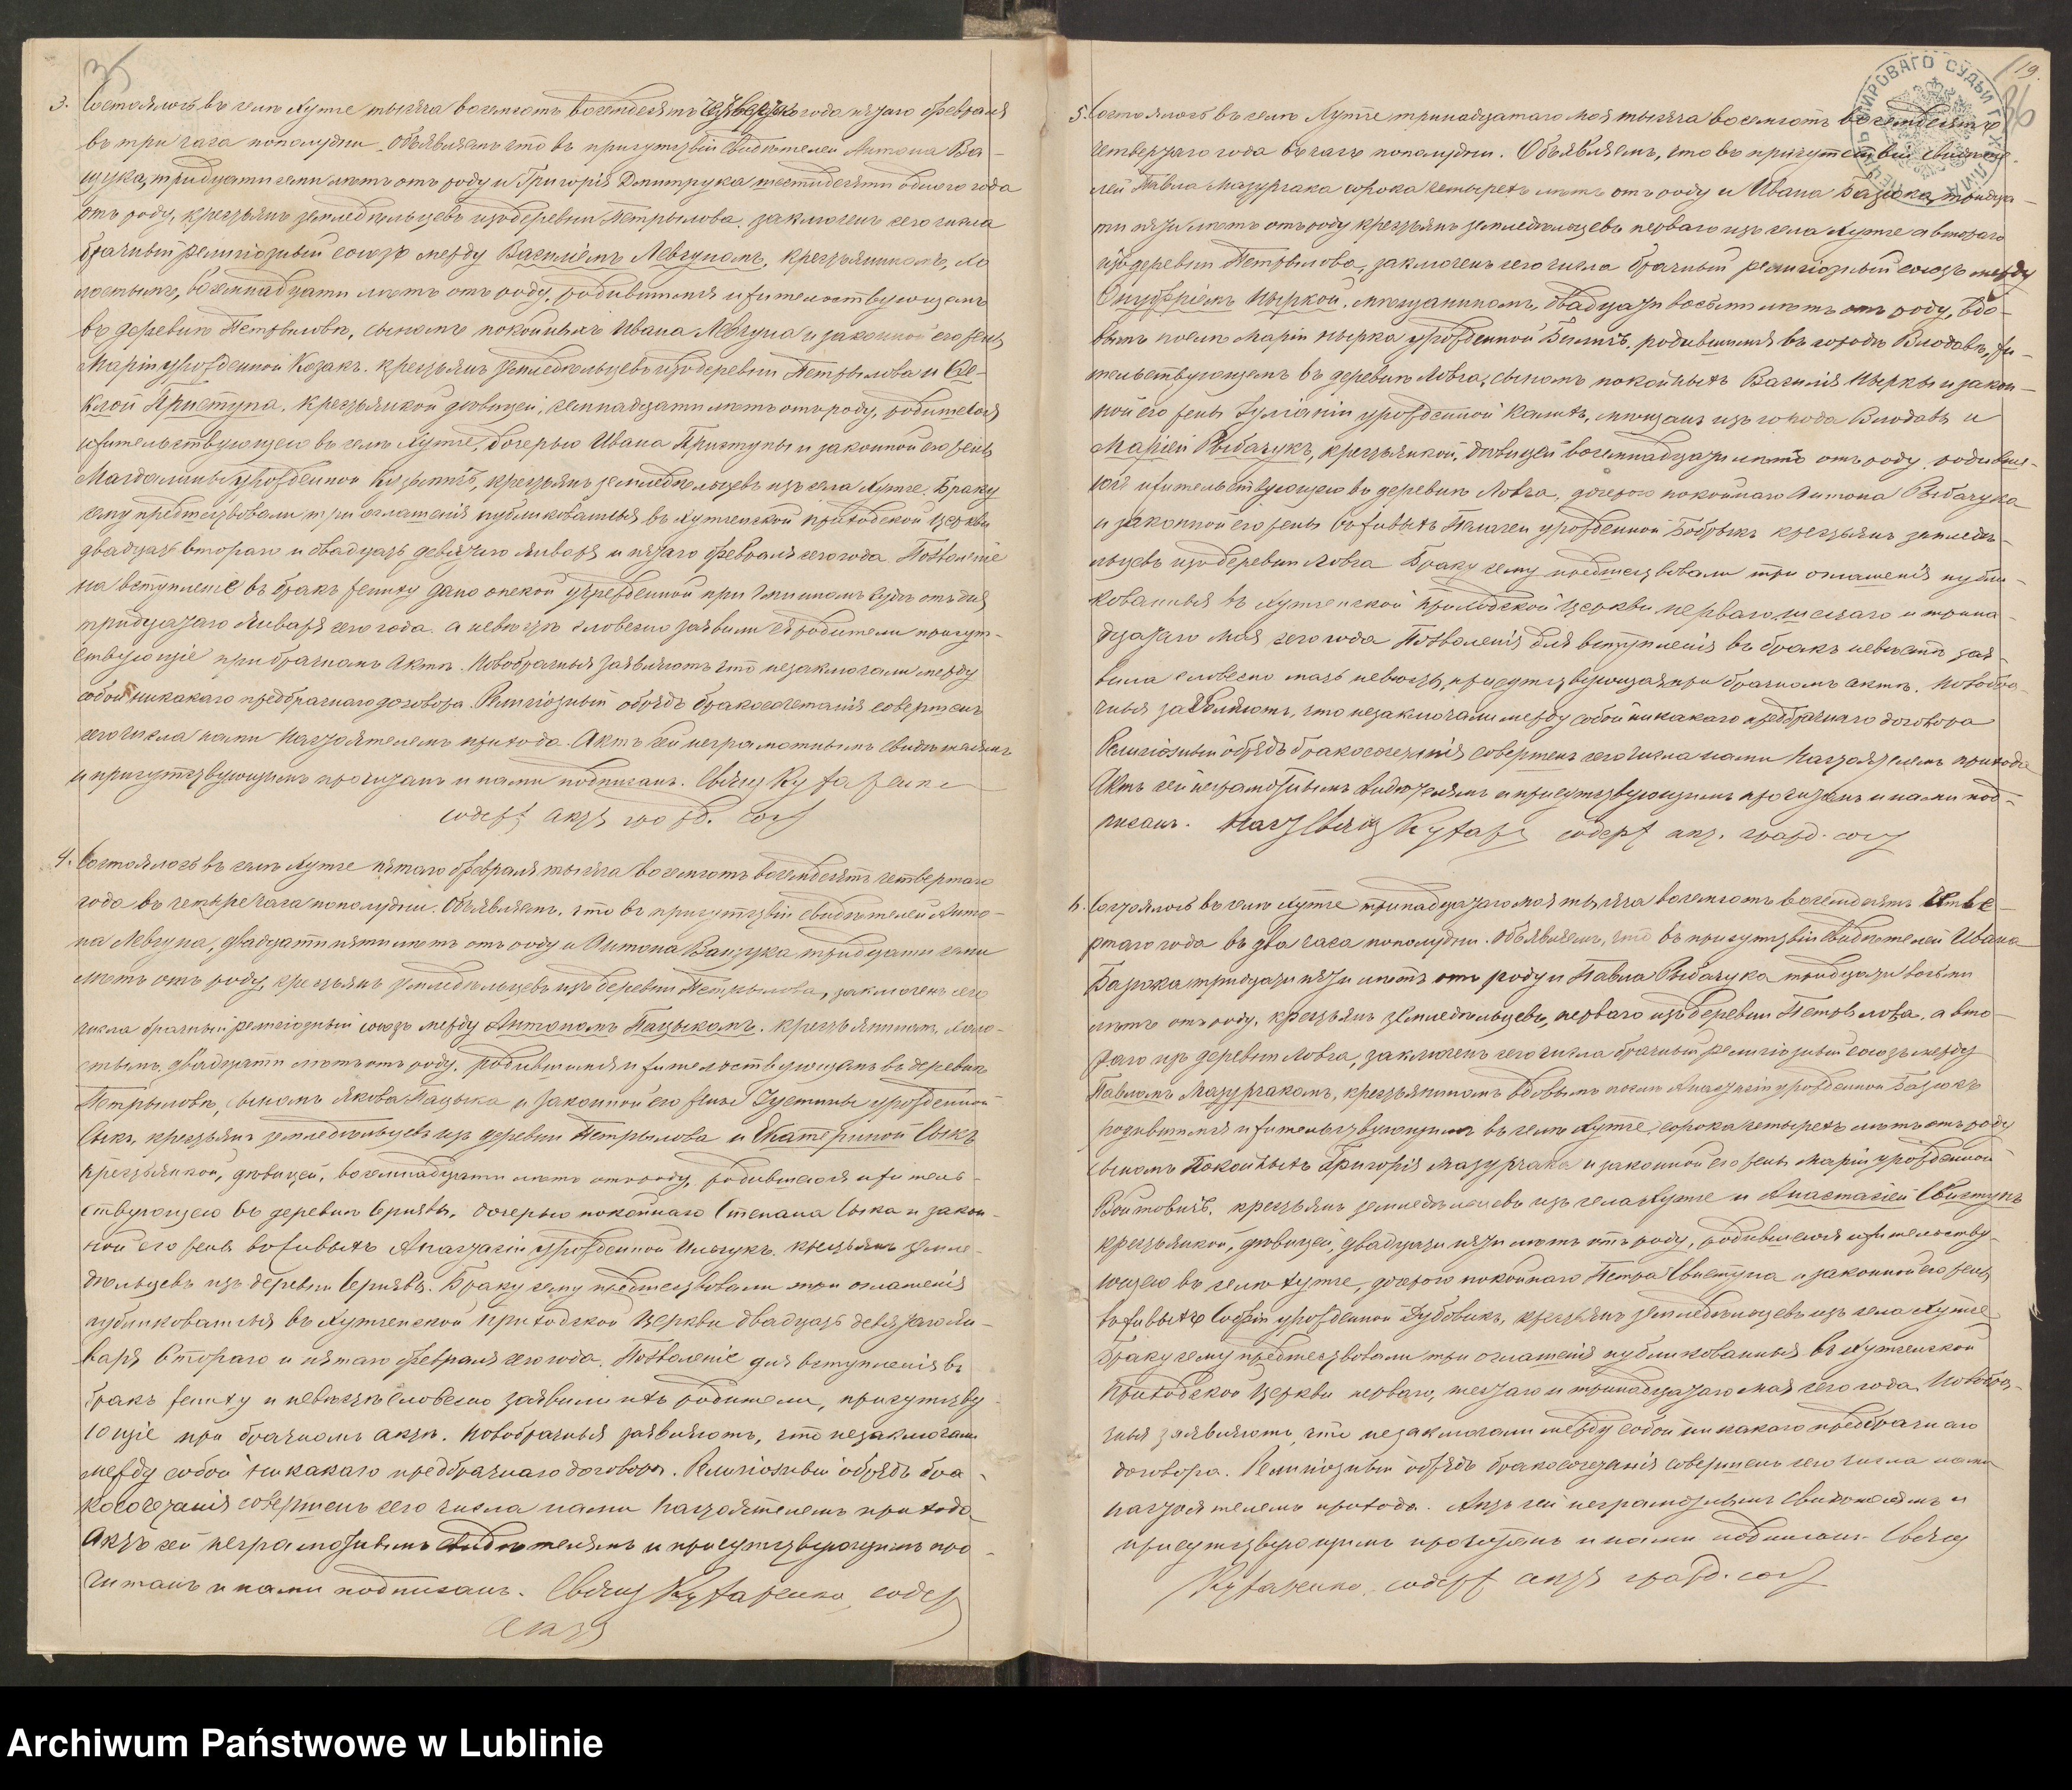 3
3. Состоялось въ селѣ Хутче тысяча восемсотъ восемдесятъ четвертаго года пятаго февраля
въ три часа пополудни. Объявляемъ что въ присутствіи свидѣтелей Антона Ва-
щука, тридцати семи лѣтъ отъ роду и Григорія Дмитрука шестидесяти одного года
отъ роду, крестьянъ земледѣльцевъ изъ деревни Петрылова, заключенъ сего числа
брачный религіозный союзъ между Василіемъ Левчуномъ, крестьяниномъ, хо
лостымъ, восемнадцати лѣтъ отъ роду, родившимся и жительствующемъ
въ деревнѣ Петрыловѣ, сыномъ покойныхъ Ивана Левчуна и законной его жены
Маріи урожденной Козакъ, крестьянъ земледѣльцевъ изъ деревни Петрылова и Ѳе-
клой Приступа, крестьянкой дѣвицей, семнадцати лѣтъ отъ роду, родившеюся
и жительствующею въ селѣ Хутче, дочерью Ивана Приступы и законной его жены
Магдалины урожденной крестьянъ земледѣльцевъ изъ села Хутче. Браку
сему предшествовали три оглашенія публикованныя въ Хутченской приходской церкви
двадцать втораго и двадцать девятаго Января и пятаго февраля сего года. Позволеніе
на вступленіе въ бракъ жениху дано опекой учрежденной при Гминномъ Судѣ отъ дня
тридцатаго Января сего года, а невѣстѣ словесно заявили ея родители присут-
ствующіе при брачномъ Актѣ. Новобрачныя заявляютъ что незаключали между
собой никакаго предбрачнаго договора. Религіозный обрядъ бракосочетанія совершенъ
сего числа нами Настоятелемъ прихода. Актъ сей неграмотнымъ свидѣтелямъ
и присутствующимъ прочитанъ и нами подписанъ. Свящ
содерж акты гражд. сост
4. Состоялось въ селѣ Хутче пятаго февраля тысяча восемсотъ восемдесятъ четвертаго
года въ четыре часа пополудни. Объявляемъ, что въ присутствіи свидѣтелей Анто-
на Левчуна, двадцати пяти лѣтъ отъ роду и Антона Ващука тридцати семи
лѣтъ отъ роду, крестьянъ земледѣльцевъ изъ деревни Петрылова, заключенъ сего
числа брачный религіозный союзъ между Антономъ Пацыкомъ, крестьяниномъ, холо-
стымъ, двадцати лѣтъ отъ роду, родившимся и жительствующемъ въ деревнѣ
Петрыловѣ, сыномъ Якова Пацыка и законной его жены Іустины урожденной
Сыкъ, крестьянъ земледѣльцевъ изъ деревни Петрылова и Екатериной Сыкъ
крестьянкой, дѣвицей, восемнадцати лѣтъ отъ роду, родившеюся и житель-
ствующею въ деревнѣ дочерью покойнаго Степана Сыка и закон-
ной его жены въ живыхъ Анастасіи урожденной крестьянъ земле-
дѣльцевъ изъ деревни Браку сему предшествовали три оглашенія
публикованныя въ Хутченской приходской церкви двадцать девятаго Ян-
варя втораго и пятаго февраля сего года. Позволеніе для вступленія въ
бракъ жениху и невѣстѣ словесно заявили ихъ родители, присутству
ющіе при брачномъ актѣ. Новобрачныя заявляютъ, что незаключали
между собой никакаго предбрачнаго договора. Религіозный обрядъ бра-
косочетанія совершенъ сего числа нами Настоятелемъ прихода
Актъ сей неграмотнымъ свидѣтелямъ и присутствующимъ про-
читанъ и нами подписанъ. Свящ содер
акты
19.
36
5. Состоялось въ селѣ Хутче тринадцатаго Мая тысяча восемсотъ восемдесятъ
четвертаго года въ часъ пополудни. Объявляемъ, что въ присутствіи свидѣте-
лей Павла Мазурчака сорока четырехъ лѣтъ отъ роду и Ивана Базюка, тридца-
ти пяти лѣтъ отъ роду крестьянъ земледѣльцевъ перваго изъ села Хутче а втораго
изъ деревни Петрылова, заключенъ сего числа брачный религіозный союзъ между
Онуфріемъ Цыркой, мѣщаниномъ, двадцати восьми лѣтъ отъ роду, вдо-
вымъ послѣ Маріи Цырка урожденной родившимся въ городѣ Влодавѣ, жи-
тельствующемъ въ деревнѣ Ловча, сыномъ покойныхъ Василія Цырки и закон-
ной его жены Іуліаніи урожденной мѣщанъ изъ города Влодавы и
Маріей Рыбачукъ, крестьянкой, дѣвицей восемнадцати лѣтъ отъ роду родивше-
юся и жительствующею въ деревнѣ Ловча, дочерью покойнаго Антона Рыбачука
и законной его жены въ живыхъ Пелагеи урожденной Бобрыкъ крестьянъ земледѣ-
льцевъ изъ деревни Ловча Браку сему предшествовали три оглашенія публи-
кованныя въ Хутченской приходской церкви перваго, шестаго и трина-
дцатаго Мая сего года Позволенія для вступленія въ бракъ невѣстѣ зая-
вила словесно мать невѣсты, присутствующая при брачномъ актѣ. Новобра-
чныя заявляютъ, что незаключали между собой никакаго предбрачнаго договора
Религіозный обрядъ бракосочетанія совершенъ сего числа нами Настоятелемъ прихода
Актъ сей неграмотнымъ свидѣтелямъ и присутствующимъ прочитанъ и нами под-
писанъ. Наст Свящ содерж акт. гражд. сост
6. Состоялось въ селѣ Хутче тринадцатаго Мая тысяча восемсотъ восемдесятъ четве-
ртаго года въ два часа пополудни. Объявляемъ, что въ присутствіи свидѣтелей Ивана
Базюка тридцати пяти лѣтъ отъ роду и Павла Рыбачука тридцати восьми
лѣтъ отъ роду, крестьянъ земледѣльцевъ, перваго изъ деревни Петрылова, а вто-
раго изъ деревни Ловча, заключенъ сего числа брачный религіозный союзъ между
Павломъ Мазурчакомъ, крестьяниномъ вдовымъ послѣ Анастасіи урожденной Базюкъ
родившимся и жительствующимъ въ селѣ Хутче, сорока четырехъ лѣтъ отъ роду
сыномъ покойныхъ Григорія Мазурчака и законной его жены Маріи урожденной
Войтовичъ, крестьянъ земледѣльцевъ изъ села Хутче и Анастасіей Свистунъ
крестьянкой, дѣвицей, двадцати пяти лѣтъ отъ роду, родившеюся и жительству-
ющею въ селѣ Хутче, дочерью покойнаго Петра Свистуна и законной его жены
въ живыхъ Софіи урожденной Дубовикъ, крестьянъ земледѣльцевъ изъ села Хутче
Браку сему предшествовали три оглашенія публикованныя въ Хутченской
приходской церкви перваго, шестаго и тринадцатаго Мая сего года. Новобра-
чныя заявляютъ, что незаключали между собой никакаго предбрачнаго
договора. Религіозный обрядъ бракосочетанія совершенъ сего числа нами
настоятелемъ прихода. Актъ сей неграмотнымъ свидѣтелямъ и
присутствующимъ прочитанъ и нами подписанъ. Свящ
содерж акты гражд. сост
Archiwum Państwowe w Lublinie